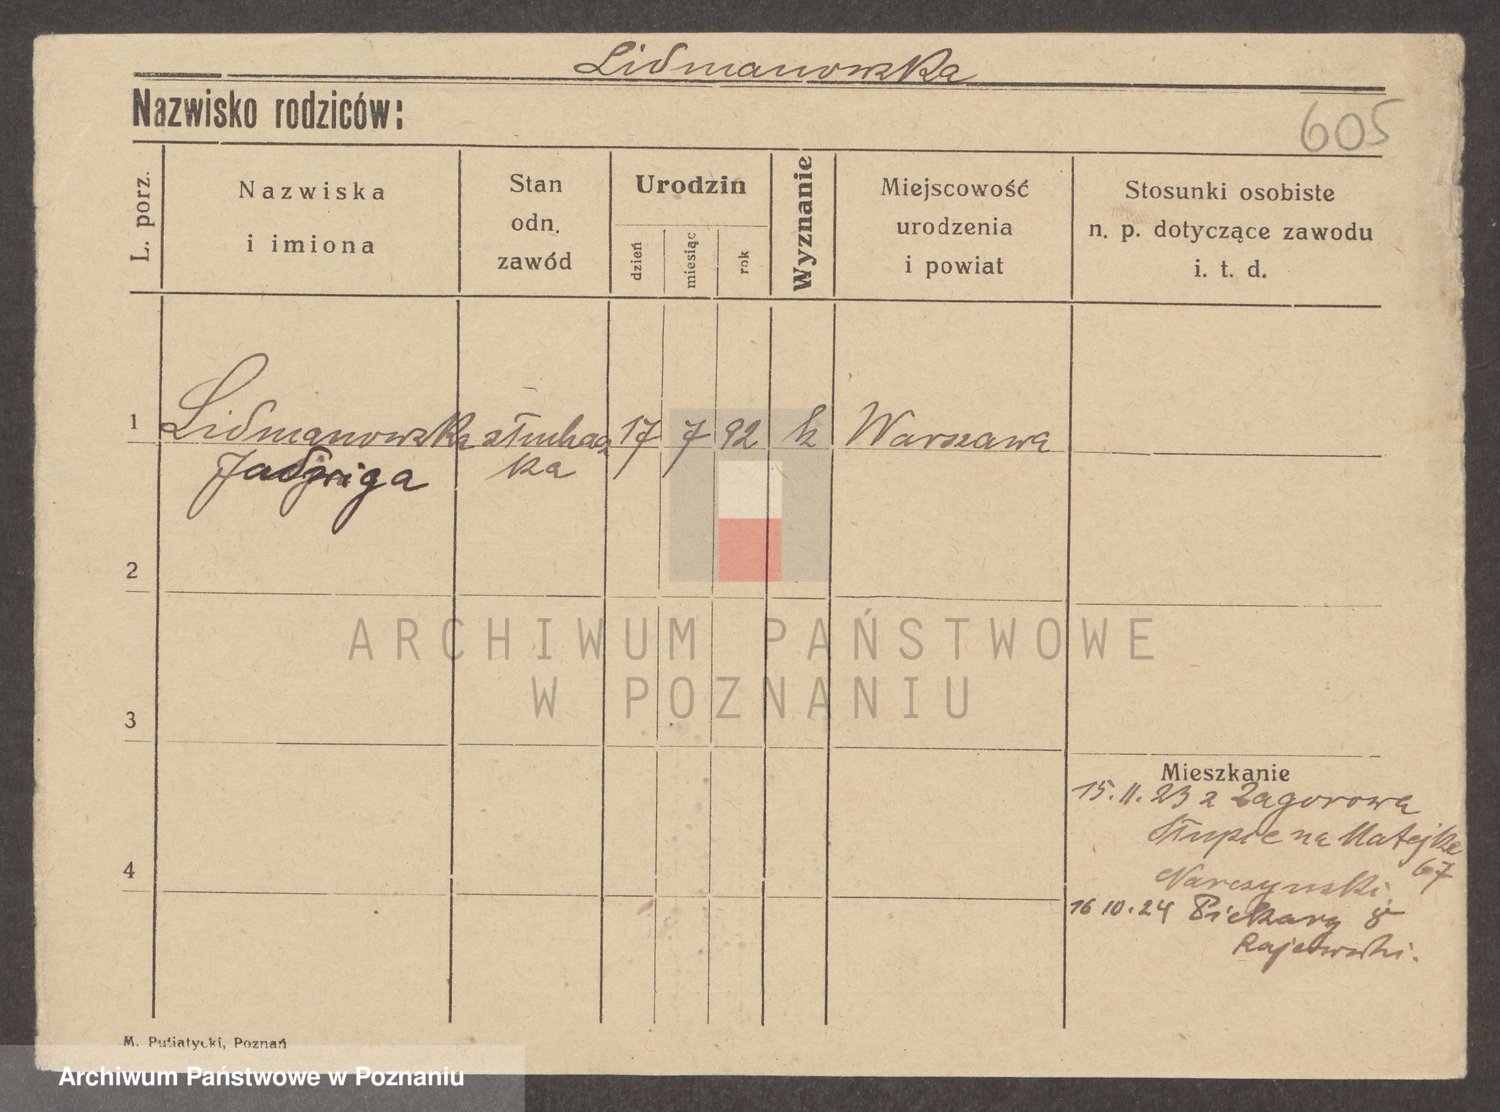 Lidmanowska
Nazwisko rodziców:
605
L. porz.
Nazwiska
i imiona
Stan
odn.
zawód
Urodzin
dzień
miesiąc
rok
Wyznanie
Miejscowość
urodzenia
i powiat
Stosunki osobiste
n. p. dotyczące zawodu
i. t. d.
1
Lidmanowska słuchacz 17 7 92 k Warszawa
Jadwiga ka
2
3
4
Mieszkanie
15.11.23 z Zagorowa
Słupce na Matejke
67
Narczynski
16 10.24 Piekary 8
Rajewski.
M. Putiatycki, Poznań
ARCHIWUM PAŃSTWOWE
W POZNANIU
Archiwum Państwowe w Poznaniu